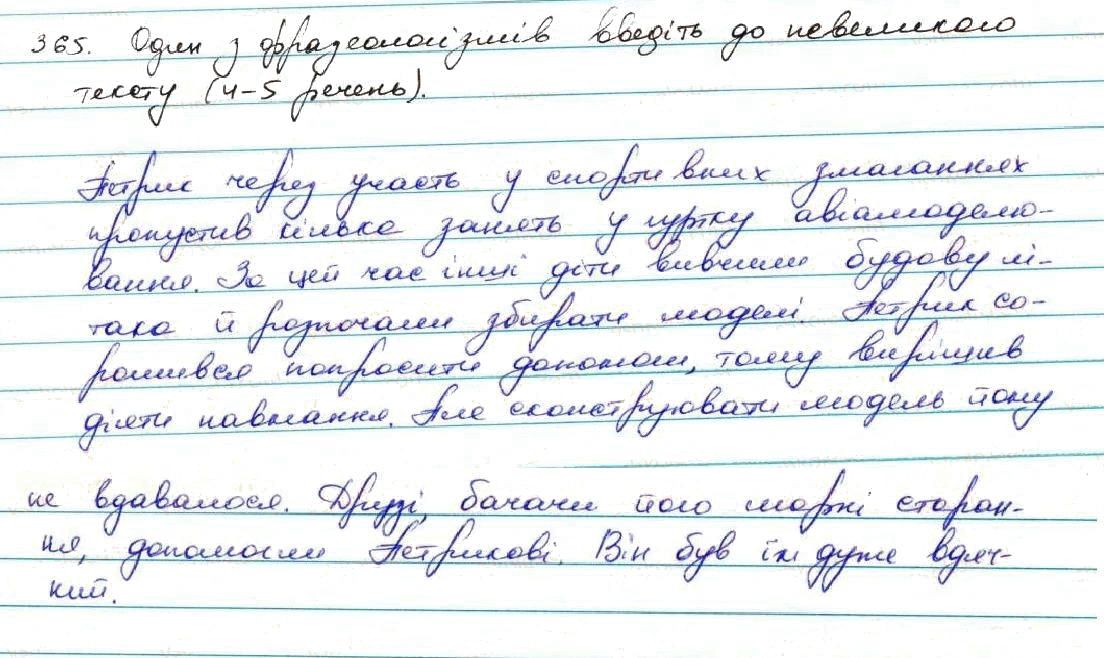 365. Один з фразеологізмів введіть до невеликого
тексту (4-5 речень).
Петрик через участь у спортивних змаганнях
пропустив кілька занять у гуртку авіамоделю-
вання. За цей час інші діти вивчили будову лі-
така й розпочали збирати моделі. Петрик со-
ромився попросити допомоги, тому вирішив
діяти навмання. Але сконструювати модель йому
не вдавалося. Друзі, бачачи його марні старан-
ня, допомогли Петрикові. Він був їм дуже вдяч-
ний.